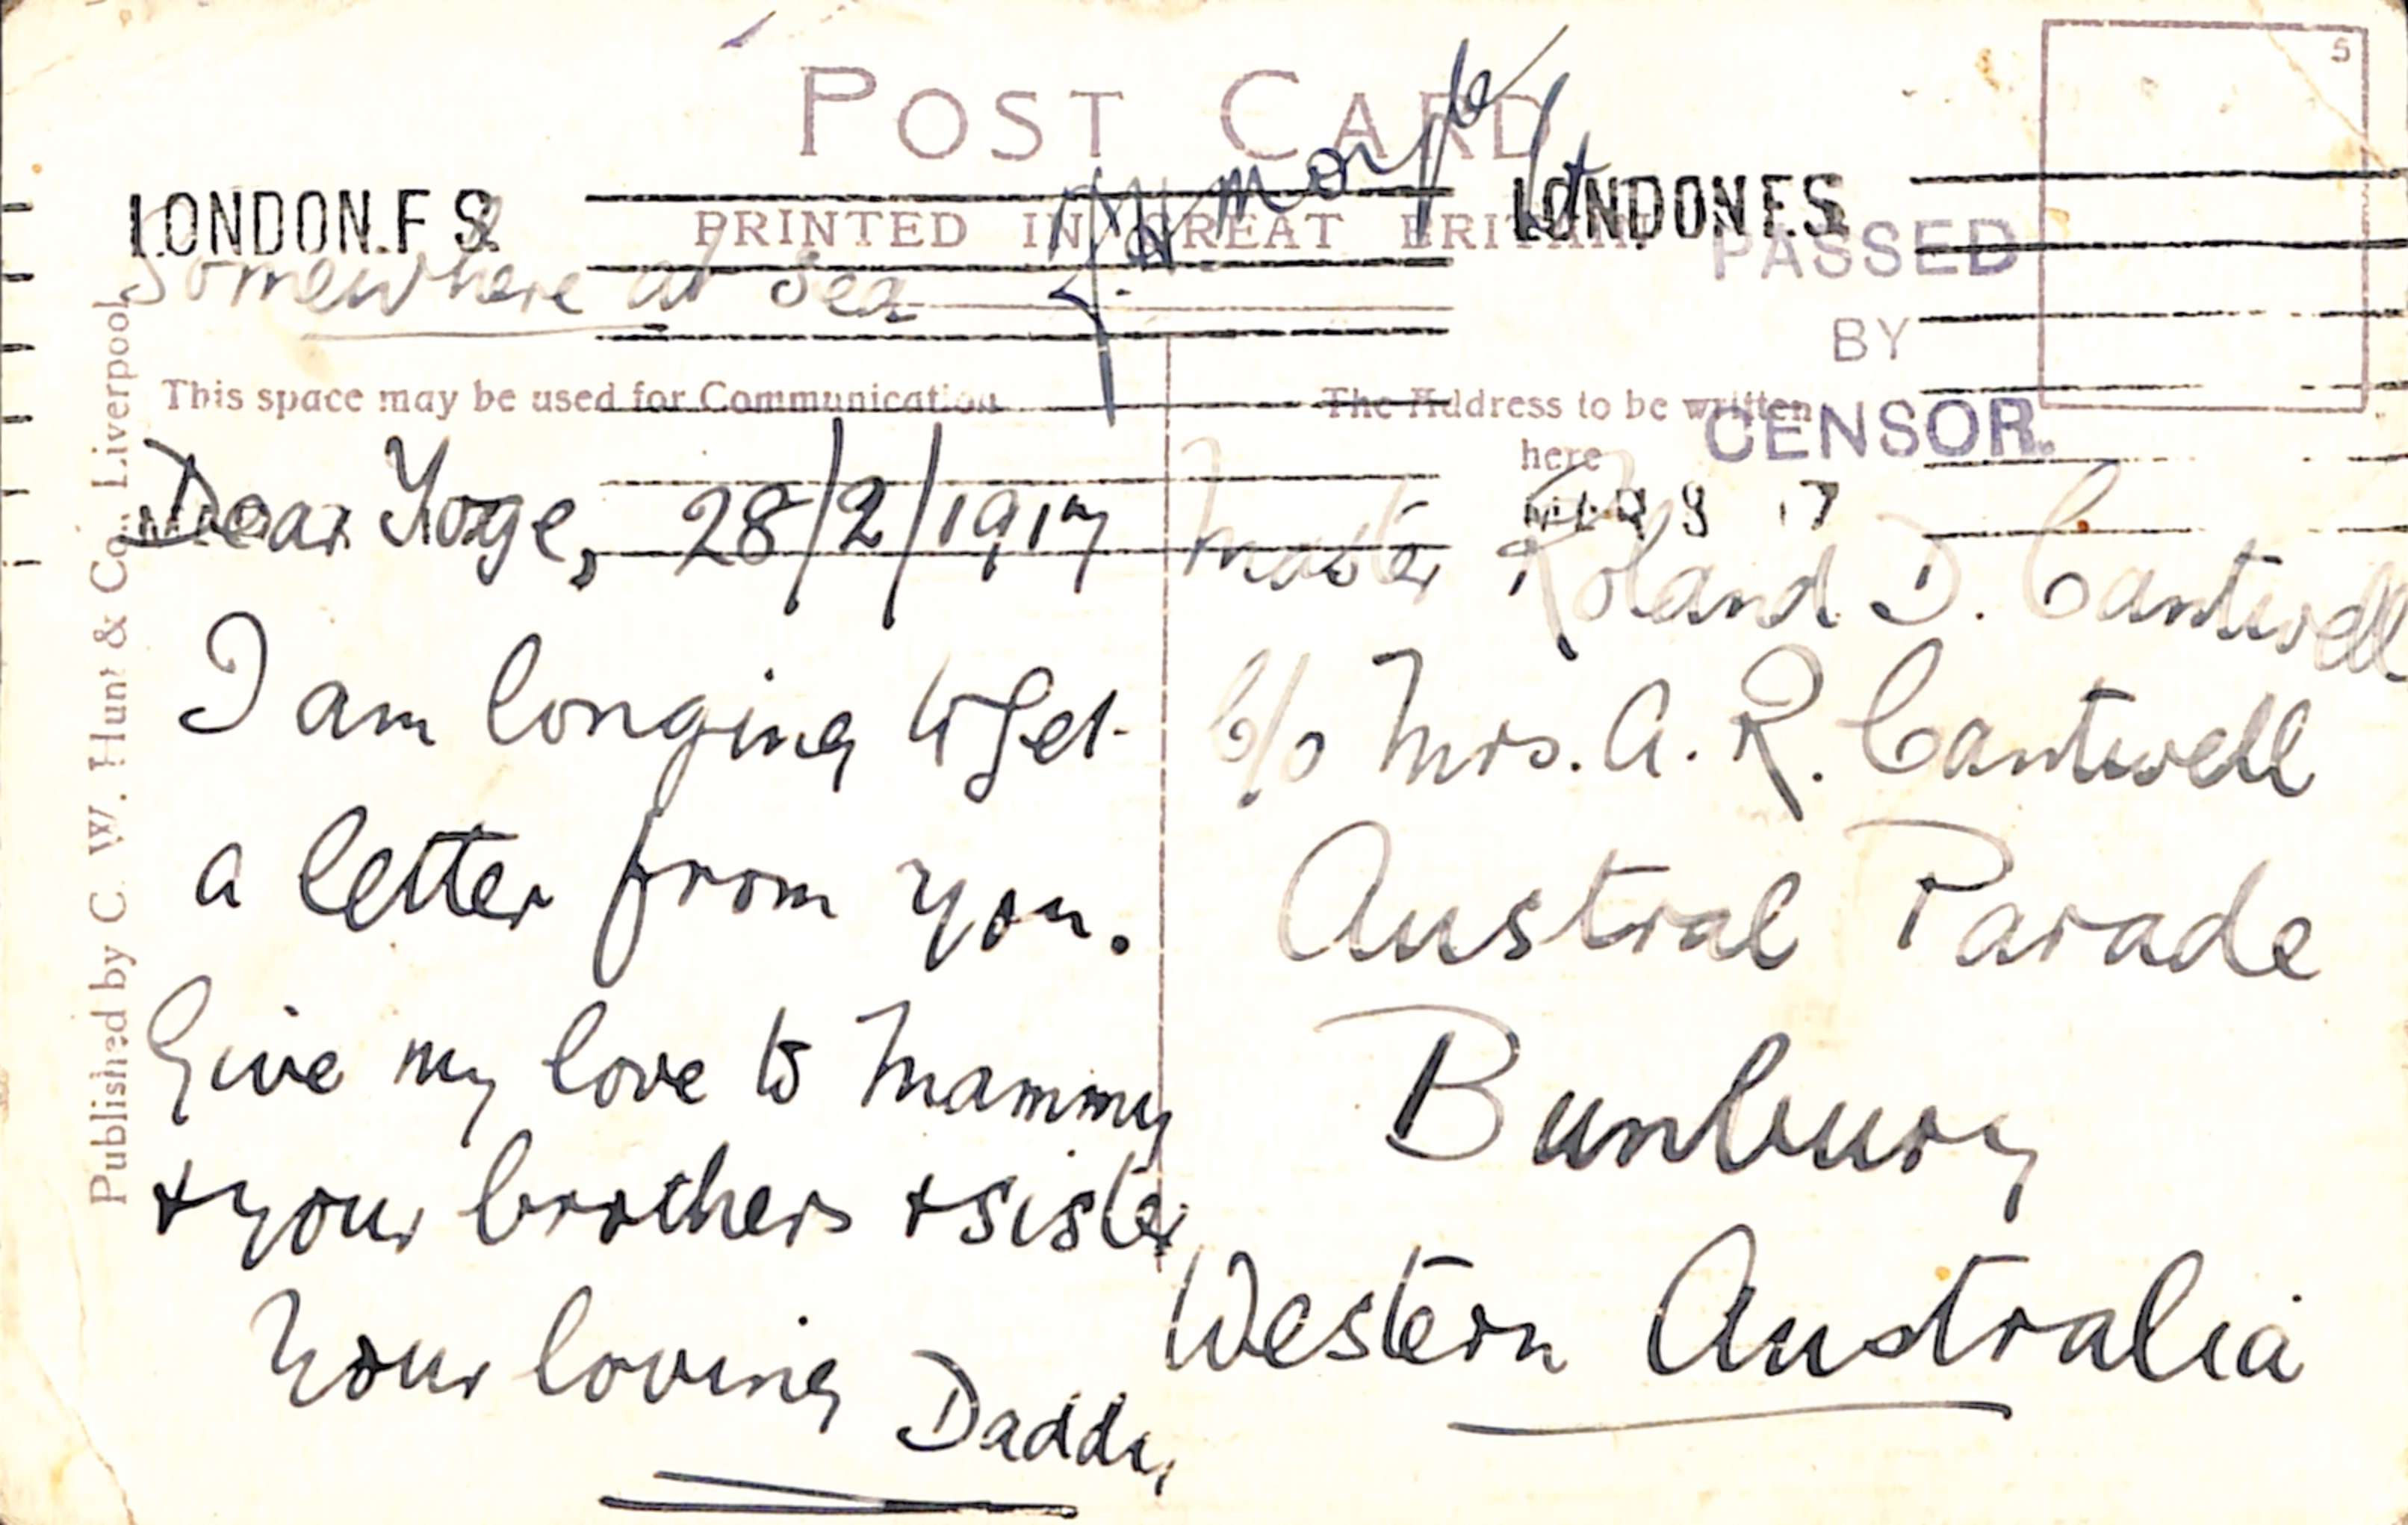 POST CARD
PRINTED IN GREAT BRITAIN
LONDON.F.S.
LONDON F.S.
PASSED
BY
CENSOR.
5
Somewhere at Sea
This space may be used for Communication
The Address to be written
here
Dear Yoge, 28/2/1917
I am longing to get
a letter from you.
Give my love to Mammy
& your brothers & sister
Your loving Daddy
Master Roland D. Cantwell
C/o Mrs. A. R. Cantwell
Austral Parade
Bunbury
Western Australia
Published by C. W. Hunt & Co., Liverpool